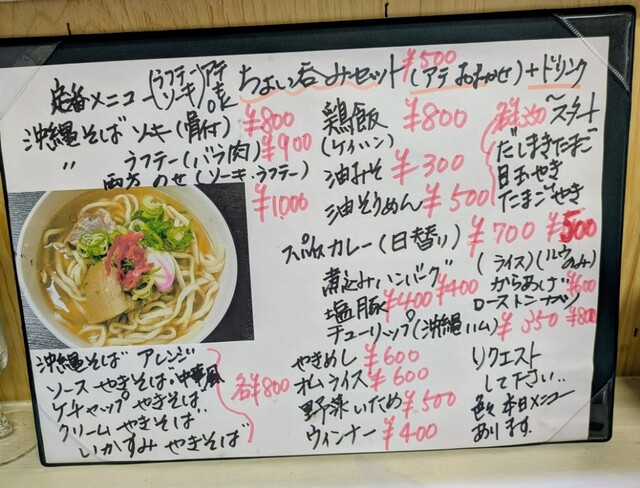 定番メニュー (ラフテー ソーキ) アテ ok
ちょい呑みセット ¥500 (アテおまかせ)+ドリンク
沖縄そば ソーキ(骨付) ¥800
〃 ラフテー(バラ肉) ¥900
両方のせ(ソーキ・ラフテー) ¥1000
沖縄そば アレンジ
ソース やきそば 中華風
ケチャップ やきそば
クリーム やきそば
いかすみ やきそば
各¥800
鶏飯 ¥800
(ケイハン)
油みそ ¥300
油そうめん ¥500
スパイスカレー(日替り) ¥700 ¥500
(ライス)(ルウのみ)
煮込みハンバーグ ¥400
塩豚 ¥400
チューリップ(沖縄ハム) ¥350
やきめし ¥600
オムライス ¥600
野菜いため ¥500
ウィンナー ¥400
スタート
だしまきたまご
たまごやき
からあげ ¥600
¥800
リクエスト
して下さい..
本日メニュー
あります.